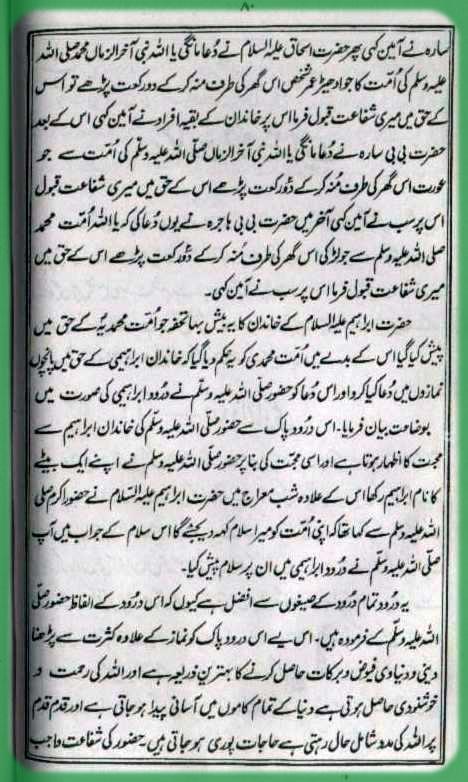 ۸۰
سارہ نے آمین کہی پھر حضرت اسحاق علیہ السلام نے دُعا مانگی یا اللہ نبی آخر الزماں محمد صلی اللہ
علیہ وسلم کی اُمّت کا جو ادھیڑ عمر شخص اس گھر کی طرف منہ کر کے دو رکعت پڑھے تو اس
کے حق میں میری شفاعت قبول فرما اس پر خاندان کے بقیہ افراد نے آمین کہی اس کے بعد
حضرت بی بی سارہ نے دُعا مانگی یا اللہ نبی آخر الزماں صلی اللہ علیہ وسلم کی اُمّت سے جو
عورت اس گھر کی طرف مُنہ کر کے دو رکعت پڑھے اس کے حق میں میری شفاعت قبول
اس پر سب نے آمین کہی آخر میں حضرت بی بی ہاجرہ نے یوں دُعا کی کہ یا اللہ اُمّت محمد
صلی اللہ علیہ وسلم سے جو لڑکی اس گھر کی طرف مُنہ کر کے دو رکعت پڑھے اس کے حق میں
میری شفاعت قبول فرما اس پر سب نے آمین کہی۔
حضرت ابراہیم علیہ السلام کے خاندان کا یہ بیش بہا تحفہ جو اُمّت محمدیہ کے حق میں
پیش کیا گیا اس کے بدلے میں اُمّت محمدی کو یہ حکم دیا گیا کہ خاندان ابراہیمی کے حق میں پانچوں
نمازوں میں دُعا کیا کرو اور اس دُعا کو حضور صلی اللہ علیہ وسلم نے درود ابراہیمی کی صورت میں
بوضاحت بیان فرمایا۔ اس درود پاک سے حضور صلی اللہ علیہ وسلم کی خاندان ابراہیم سے
محبت کا اظہار ہوتا ہے اور اسی محبّت کی بنا پر حضور صلی اللہ علیہ وسلم نے اپنے ایک بیٹے
کا نام ابراہیم رکھا اس کے علاوہ شب معراج میں حضرت ابراہیم علیہ السلام نے حضور اکرم صلی
اللہ علیہ وسلم سے کہا تھا کہ اپنی اُمّت کو میرا سلام کہہ دیجئے گا اس سلام کے جواب میں آپ
صلی اللہ علیہ وسلم نے درود ابراہیمی میں ان پر سلام پیش کیا۔
یہ درود تمام درود کے صیغوں سے افضل ہے کیوں کہ اس درود کے الفاظ حضور صلی
اللہ علیہ وسلم کے فرمودہ ہیں۔ اس لیے اس درود پاک کو نماز کے علاوہ کثرت سے پڑھنا
دینی و دنیاوی فیوض و برکات حاصل کرنے کا بہترین ذریعہ ہے اور اللہ کی رحمت و
خوشنودی حاصل ہوتی ہے دنیا کے تمام کاموں میں آسانی پیدا ہو جاتی ہے اور قدم قدم
پر اللہ کی مدد شامل حال رہتی ہے حاجات پوری ہو جاتی ہیں۔ حضور کی شفاعت واجب